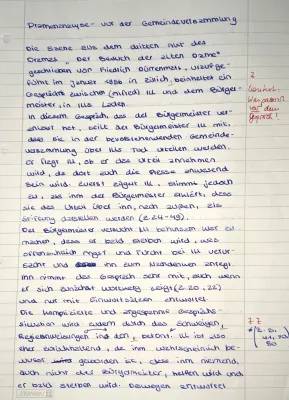 Dramenanalyse - vor der Gemeindeversammlung
Die Szene aus dem dritten Akt des
Dramas „Der Besuch der alten Dame"
geschrieben von Friedrich Dürrenmatt, uraufge-
führt im Januar 1956 in Zürich, beinhaltet ein
Gespräch zwischen (Alfred) Ill und dem Bürger-
meister, in Ills Laden.
In diesem Gespräch, das der Bürgermeister ver-
anlasst hat, teilt der Bürgermeister Ill mit,
dass sie in der bevorstehenden Gemeinde-
versammlung über Ills Tod urteilen werden.
er fragt Ill, ob er das Urteil annehmen
wird, da dort auch die Presse anwesend
sein wird. Zuerst zögert Ill, stimmt jedoch
zu, als ihm der Bürgermeister erklärt, dass
sie das Urteil über ihn, nach außen, als
Stiftung darstellen werden (Z. 24-49).
Der Bürgermeister versucht Ill
machen, dass er bald sterben wird, was
offensichtlich Angst und Furcht bei Ill verur-
sacht und ihn zum Nachdenken anregt.
Ihn nimmt das Gespräch sehr mit, auch wenn
er sich zunächst wortkarg zeigt (Z. 20, 22)
und nur mit Einwortsätzen antwortet.
Die komplizierte und angespannte Gesprächs-
situation wird zudem durch das Schweigen,
Regieanweisungen und den, betont. Ill ist also
eher zurückhaltend, da ihm wahrscheinlich be-
wusst geworden ist, dass ihm niemand,
auch nicht der Bürgermeister, helfen wird und
er bald sterben wird. Deswegen antwortet
?
das
Gespräch!
??